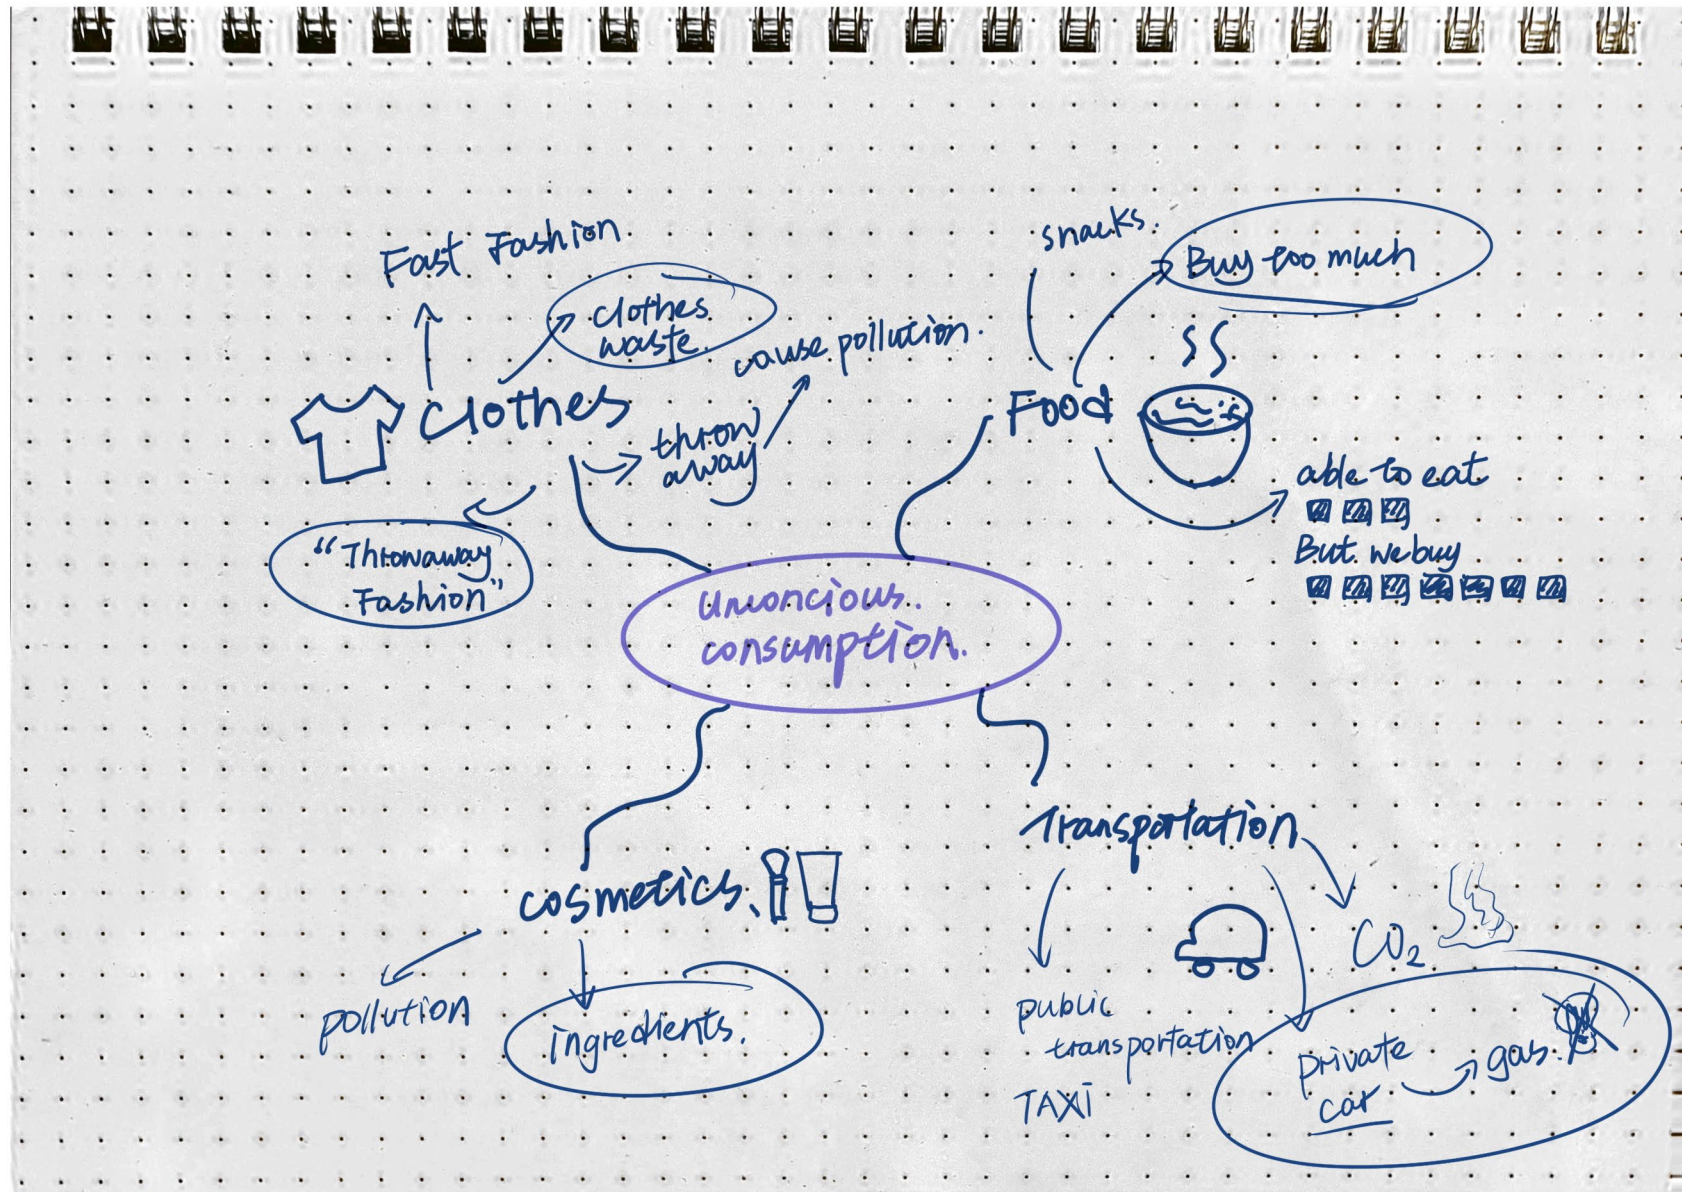 Fast Fashion
clothes
waste.
cause pollution.
clothes
throw
away
"Throwaway
Fashion"
snacks.
Buy too much
Food
able to eat
But we buy
unconcious.
consumption.
cosmetics.
pollution
ingredients.
Transportation
CO₂
public
transportation
TAXI
private
car
gas.